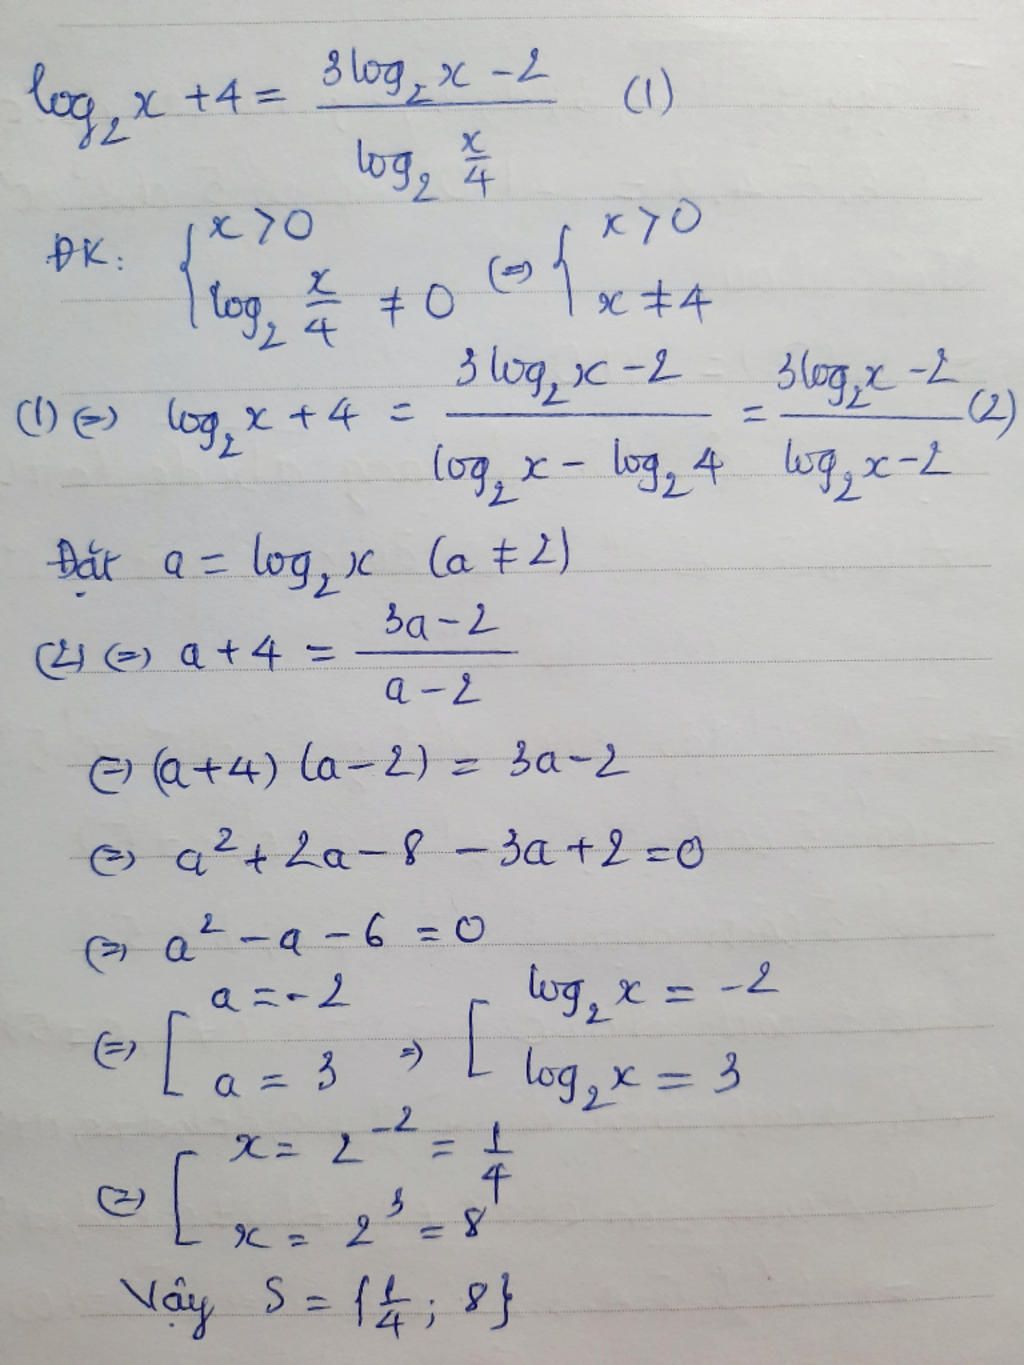 log₂x + 4 = (3log₂x - 2)/(log₂ x/4) (1)
ĐK: { x > 0 ; log₂ x/4 ≠ 0 (=) { x > 0 ; x ≠ 4
(1) (=) log₂x + 4 = (3log₂x - 2)/(log₂x - log₂4) = (3log₂x - 2)/(log₂x - 2) (2)
Đặt a = log₂x (a ≠ 2)
(2) (=) a + 4 = (3a - 2)/(a - 2)
(=) (a + 4) (a - 2) = 3a - 2
(=) a² + 2a - 8 - 3a + 2 = 0
(=) a² - a - 6 = 0
(=) [ a = -2 ; a = 3 => [ log₂x = -2 ; log₂x = 3
(=) [ x = 2⁻² = 1/4 ; x = 2³ = 8
Vậy S = {1/4; 8}